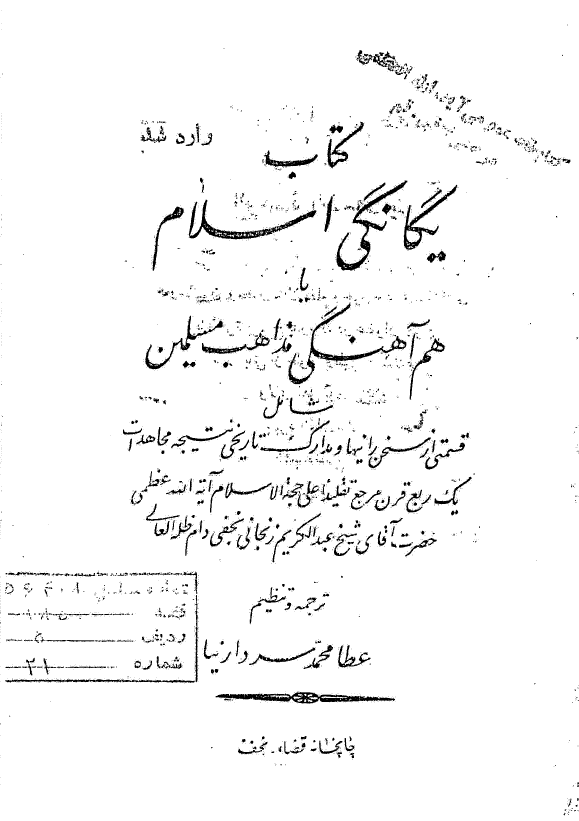 وارد شد
کتاب
یگانگی اسلام
یا
هم آهنگی مذاهب مسلمین
شامل
قسمتی از سخن رانیها و مدارک تاریخی نتیجه مجاهدات
یک ربع قرن مرجع تقلید اعلی حجة الاسلام آیة الله عظمی
حضرت آقای شیخ عبدالکریم زنجانی نجفی دام ظله العالی
ترجمه و تنظیم
عطا محمد سردارنیا
ردیف ۵
شماره ۲۱
چاپخانه قضاء - نجف